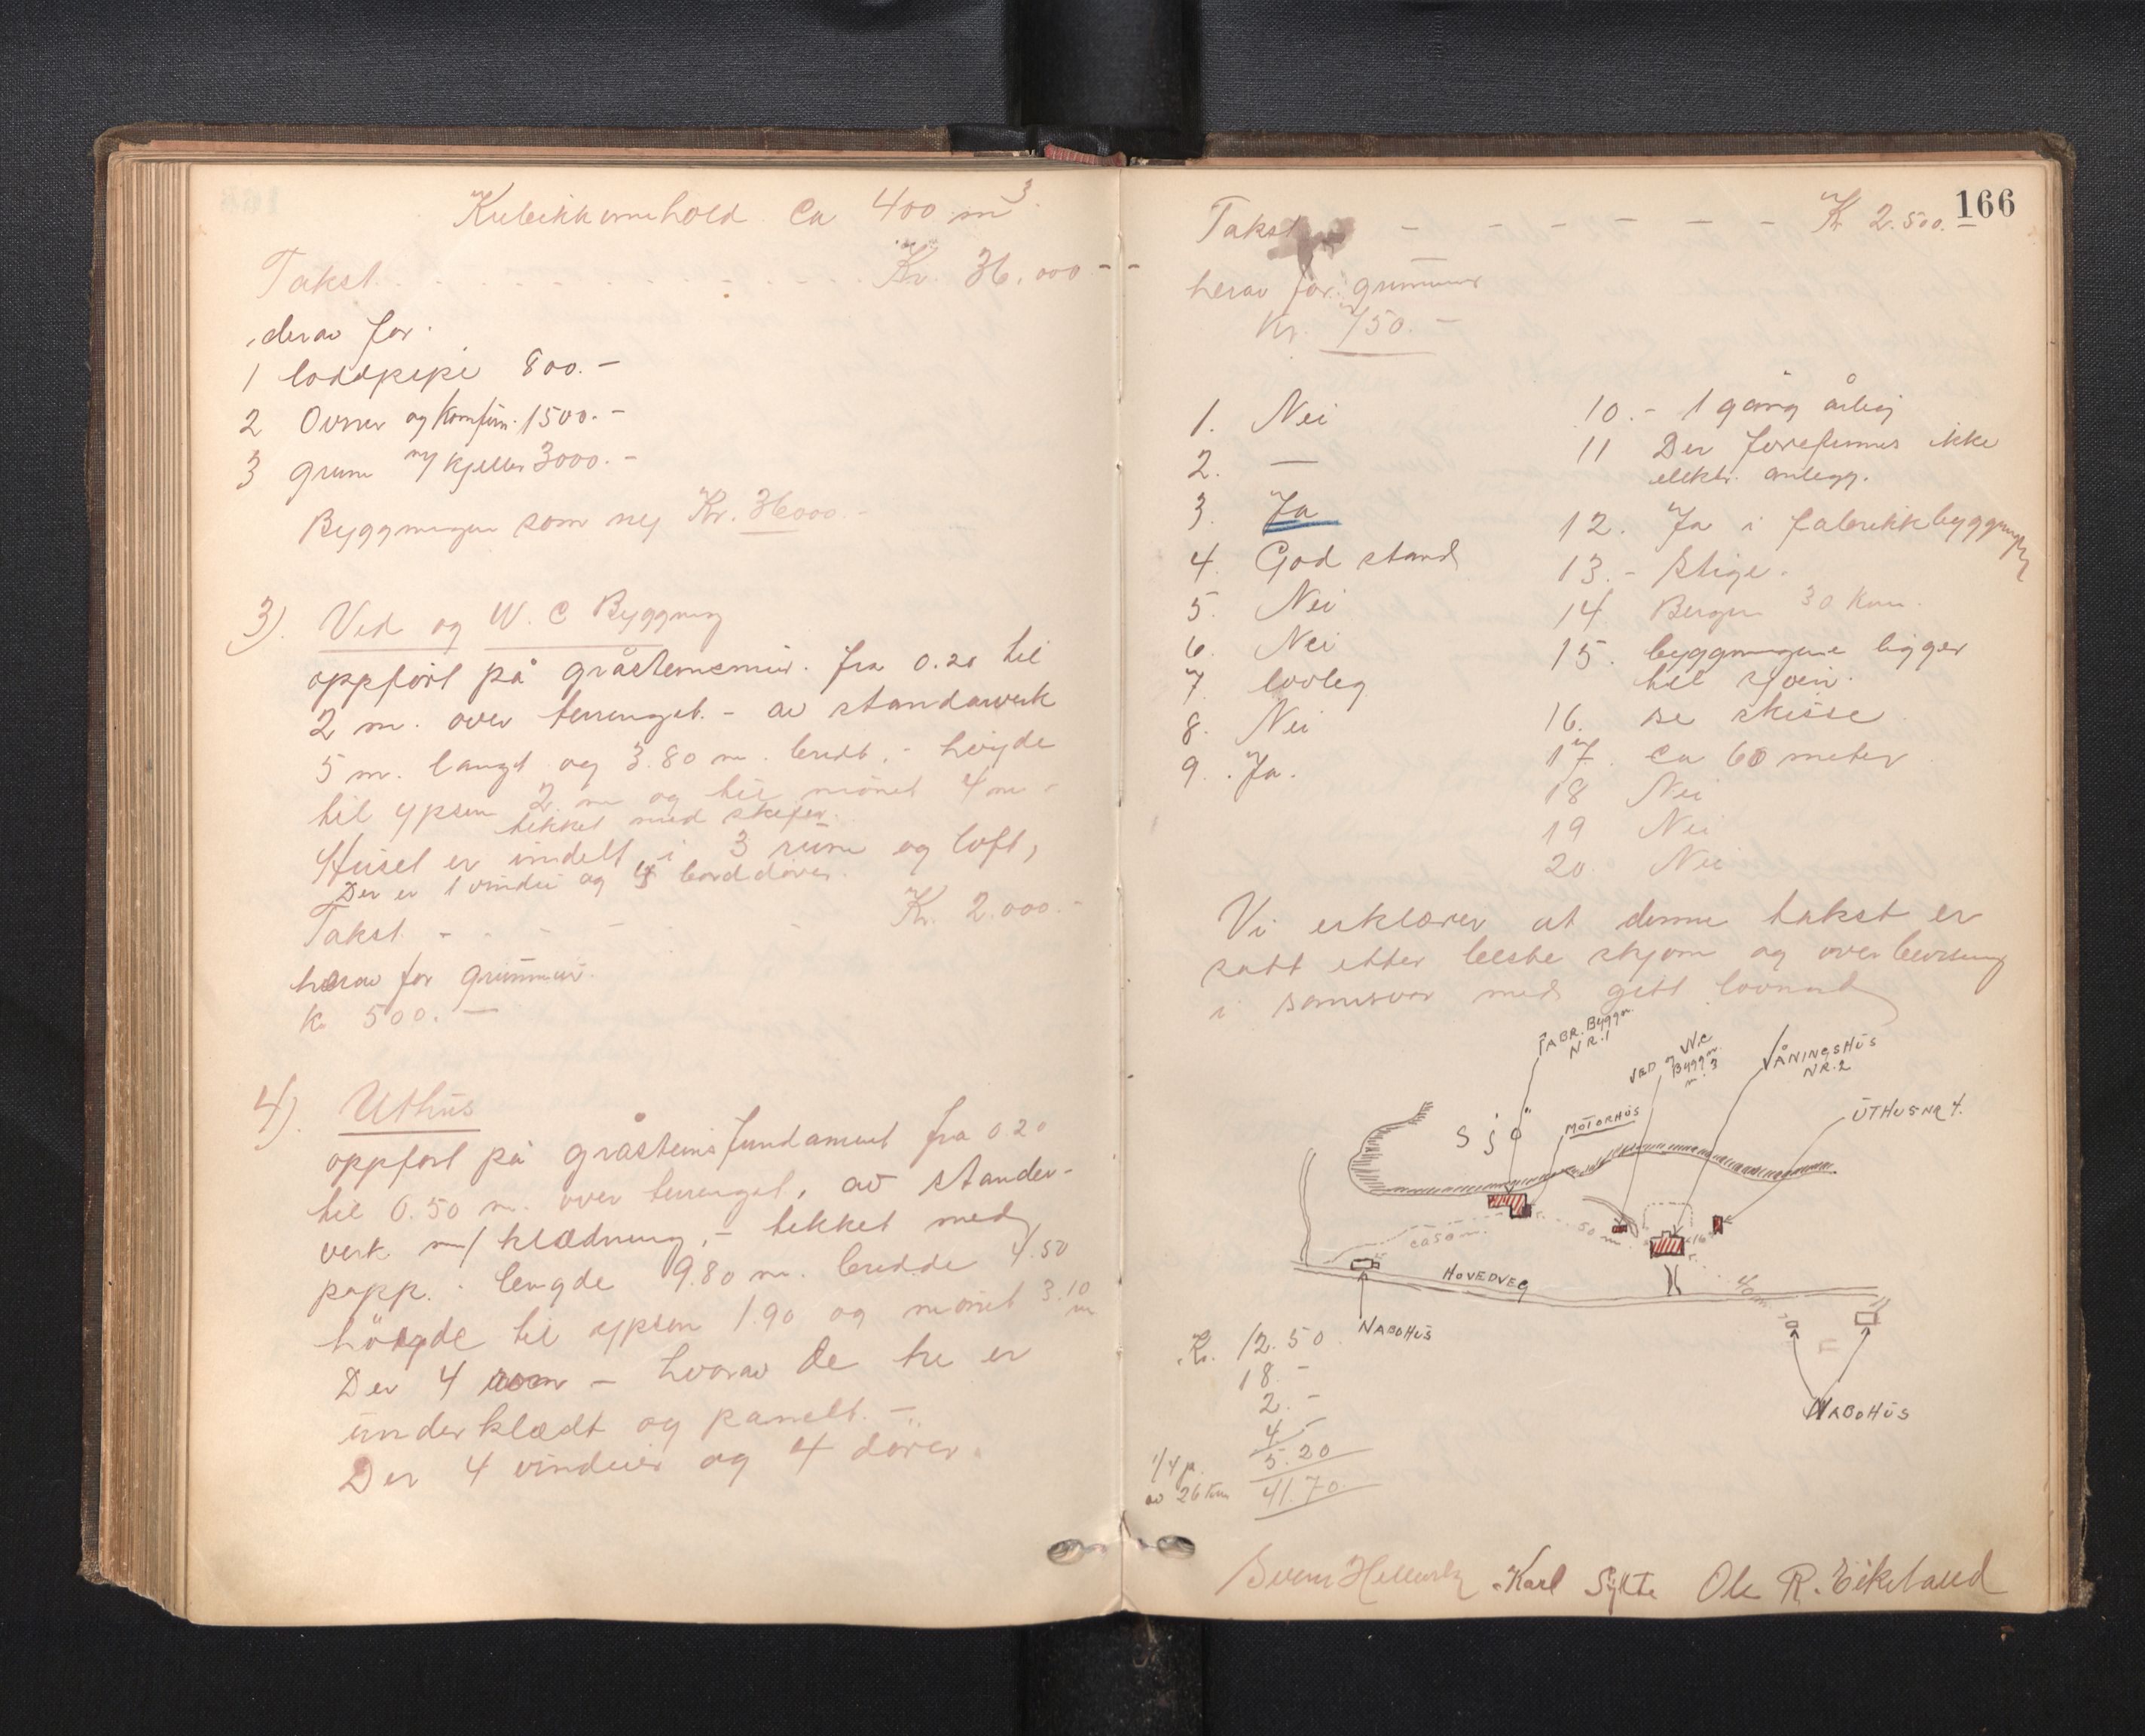 Kubikkinnhold ca 400 m³.
Takst. Kr. 36.000.-
derav for.
1 loddpipe 800.-
2 Ovner og Komfür. 1500.-
3 grunn og kjeller 3000.-
Byggningen som ny Kr. 36000.-
3). Ved og W.C Byggning
oppført på gråstensmur. fra 0.20 til
2 m. over terrenget. - av standarverk
5 m. langt og 3.80 m. bredt. - høyde
til ypsen 2 m og til mønet 4 m -
tekket med skifer.
Huset er inndelt i 3 rum og loft,
Der er 1 vindu og 4 borddører.
Takst - Kr. 2.000.-
herav for grunnmur.
Kr 500.-
4). Uthus
oppført på gråsteinsfundament fra 0.20
til 0.50 m. over terrenget, av stander-
verk m/ klædning, - tekket med
papp. - lengde 9.80 m. bredde 4.50
höyde til ypsen 1.90 og mønet 3.10 m
Der 4 rom - hvorav de tre er
underklædt og panelt. -
Der 4 vinduer og 4 dører.
166
Takst - - - - - - Kr 2.500.-
herav for grunnmur
Kr. 750.-
1. Nei
2. —
3. Ja
4. God stand
5. Nei
6. Nei
7 lovleg
8. Nei
9. Ja.
10.- 1 gang årleg
11 Der forefinnes ikke
elektr. anlegg.
12. Ja i fabrikkbyggningen
13.- Stige.
14 Bergen 30 Km.
15. byggningene ligger
til sjøen.
16. se skisse
17. ca 60 meter
18 Nei
19 Nei
20. Nei
Vi erklærer at denne takst er
satt etter beste skjønn og overbevisning
i samsvar med gitt lovnad
FABR. Byggn.
NR. 1
VED og Wc
Byggn.
nr. 3
VÅNINGSHUS
NR. 2
UTHUS NR 4.
Sjö
MOTORHUS
ca 50 m.
50 m.
16
40 m.
HOVEDVEG
NABOHUS
NABOHUS
Kr. 12.50
18.-
2.-
4.-
5.20
1/4 p.
av 26 km
41.70.
Karl Sylte Ole R. Eikeland